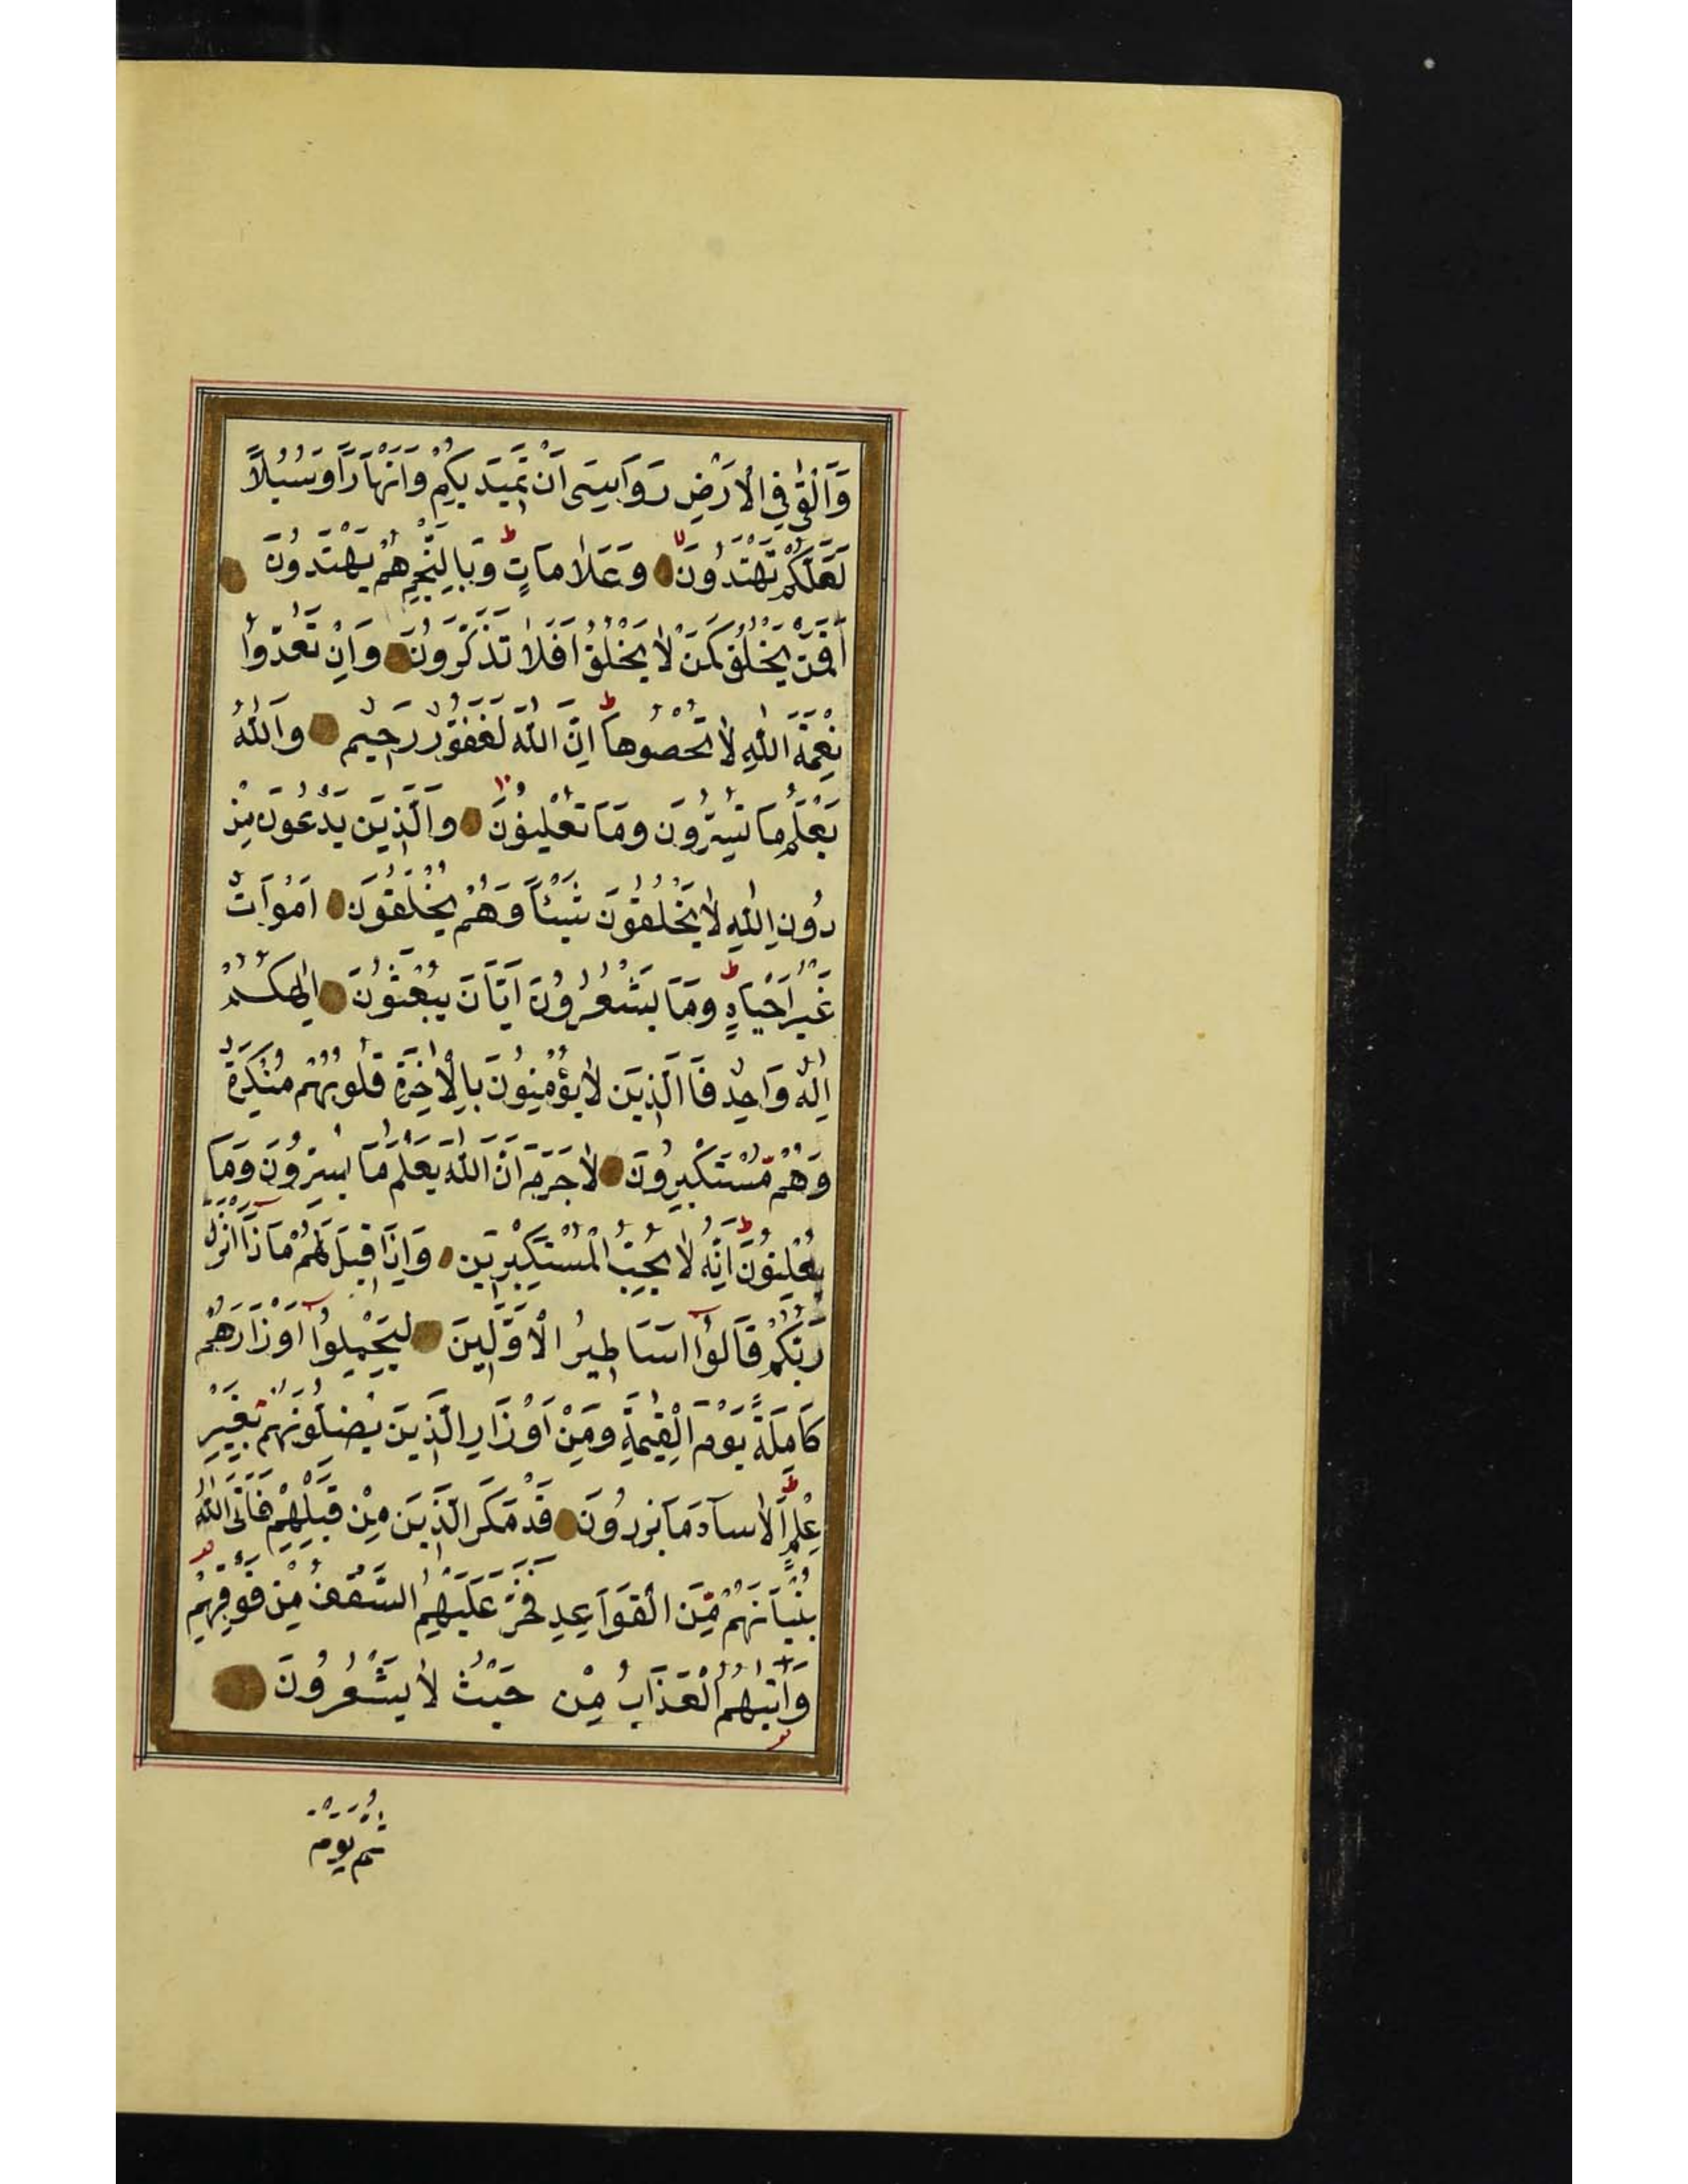 وَاَلْقٰى فِي الْاَرْضِ رَوَاسِيَ اَنْ تَمِيدَ بِكُمْ وَاَنْهَارًا وَسُبُلًا
لَعَلَّكُمْ تَهْتَدُونَ وَعَلَامَاتٍ ط وَبِالنَّجْمِ هُمْ يَهْتَدُونَ
اَفَمَنْ يَخْلُقُ كَمَنْ لَا يَخْلُقُ اَفَلَا تَذَكَّرُونَ وَاِنْ تَعُدُّوا
نِعْمَةَ اللّٰهِ لَا تُحْصُوهَا ط اِنَّ اللّٰهَ لَغَفُورٌ رَحِيمٌ وَاللّٰهُ
يَعْلَمُ مَا تُسِرُّونَ وَمَا تُعْلِنُونَ وَالَّذِينَ يَدْعُونَ مِنْ
دُونِ اللّٰهِ لَا يَخْلُقُونَ شَيْئًا وَهُمْ يُخْلَقُونَ اَمْوَاتٌ
غَيْرُ اَحْيَاءٍ ط وَمَا يَشْعُرُونَ اَيَّانَ يُبْعَثُونَ اِلٰهُكُمْ
اِلٰهٌ وَاحِدٌ فَاالَّذِينَ لَا يُؤْمِنُونَ بِالْاٰخِرَةِ قُلُوبُهُمْ مُنْكِرَةٌ
وَهُمْ مُسْتَكْبِرُونَ لَا جَرَمَ اَنَّ اللّٰهَ يَعْلَمُ مَا يُسِرُّونَ وَمَا
يُعْلِنُونَ ط اِنَّهُ لَا يُحِبُّ الْمُسْتَكْبِرِينَ وَاِذَا قِيلَ لَهُمْ مَاذَا اَنْزَلَ
رَبُّكُمْ قَالُوا اَسَاطِيرُ الْاَوَّلِينَ لِيَحْمِلُوا اَوْزَارَهُمْ
كَامِلَةً يَوْمَ الْقِيٰمَةِ وَمِنْ اَوْزَارِ الَّذِينَ يُضِلُّونَهُمْ بِغَيْرِ
عِلْمٍ ط اَلَا سَاءَ مَا يَزِرُونَ قَدْ مَكَرَ الَّذِينَ مِنْ قَبْلِهِمْ فَاَتَى اللّٰهُ
بُنْيَانَهُمْ مِنَ الْقَوَاعِدِ فَخَرَّ عَلَيْهِمُ السَّقْفُ مِنْ فَوْقِهِمْ
وَاَتٰيهُمُ الْعَذَابُ مِنْ حَيْثُ لَا يَشْعُرُونَ
ثُمَّ يَوْمَ